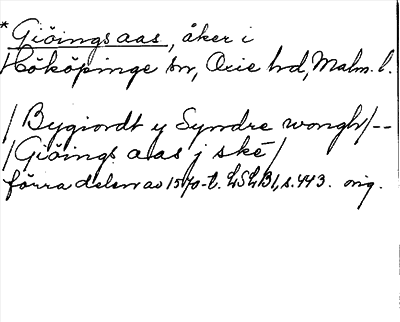 *Giöings aas, åker i
Hököpinge sn, Oxie hd, Malm. l.
/Bygiordt y Syndre wongh/--
/Giöings aas j ské/
förra delen av 1570-t. LSLB1, s. 443. orig.